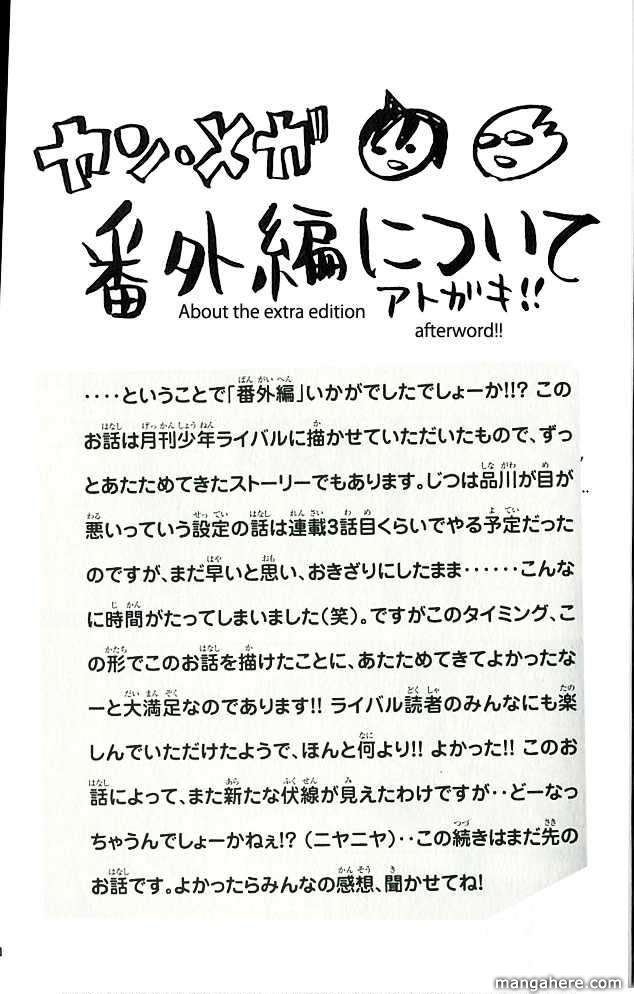 ヤン・メガ
番外編について
About the extra edition
アトガキ!!
afterword!!
‥‥ということで「番外編」いかがでしたでしょーか!!? この
お話は月刊少年ライバルに描かせていただいたもので、ずっ
とあたためてきたストーリーでもあります。じつは品川が目が
悪いっていう設定の話は連載3話目くらいでやる予定だった
のですが、まだ早いと思い、おきざりにしたまま‥‥‥こんな
に時間がたってしまいました(笑)。ですがこのタイミング、こ
の形でこのお話を描けたことに、あたためてきてよかったな
ーと大満足なのであります!! ライバル読者のみんなにも楽
しんでいただけたようで、ほんと何より!! よかった!! このお
話によって、また新たな伏線が見えたわけですが‥どーなっ
ちゃうんでしょーかねぇ!? (ニヤニヤ)‥この続きはまだ先の
お話です。よかったらみんなの感想、聞かせてね!
mangahere.com